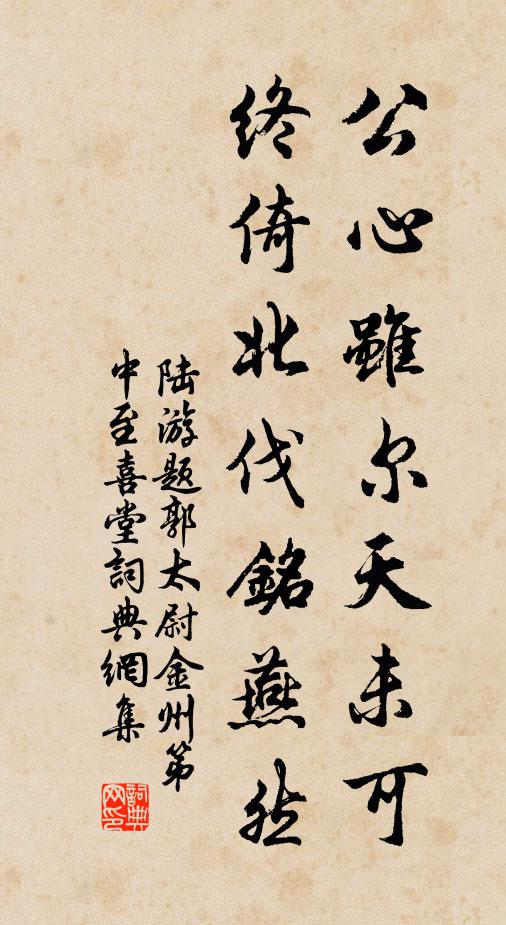 公心雖尔天未可
終倚北伐銘燕然
陆游题郭太尉金州第
中至喜堂詞典網集
詞典网印